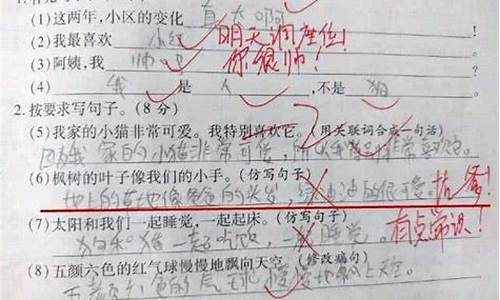 (1)这两年,小区的变化 真大啊
(2)我最喜欢 小红 明天调座位!
(3)阿姨,我 帅吗 你很帅!
(4) 我 是 人 ,不是 狗
2.按要求写句子。(8分)
(5)我家的小猫非常可爱。我特别喜欢它。(用关联词合成一句话)
因为我家的小猫非常可爱,所以我特别非常喜欢它。
(6)枫树的叶子像我们的小手。(仿写句子)
地上的草地像爸爸的头发,绿油油的很可爱。找爹!
(7)太阳和我们一起睡觉,一起起床。(仿写句子)
狗和猪一起吃饭,一起睡觉。有点常识!
(8)五颜六色的红气球慢慢地飘向天空。(修改病句)
五颜六色的气球慢慢地飘上天空。